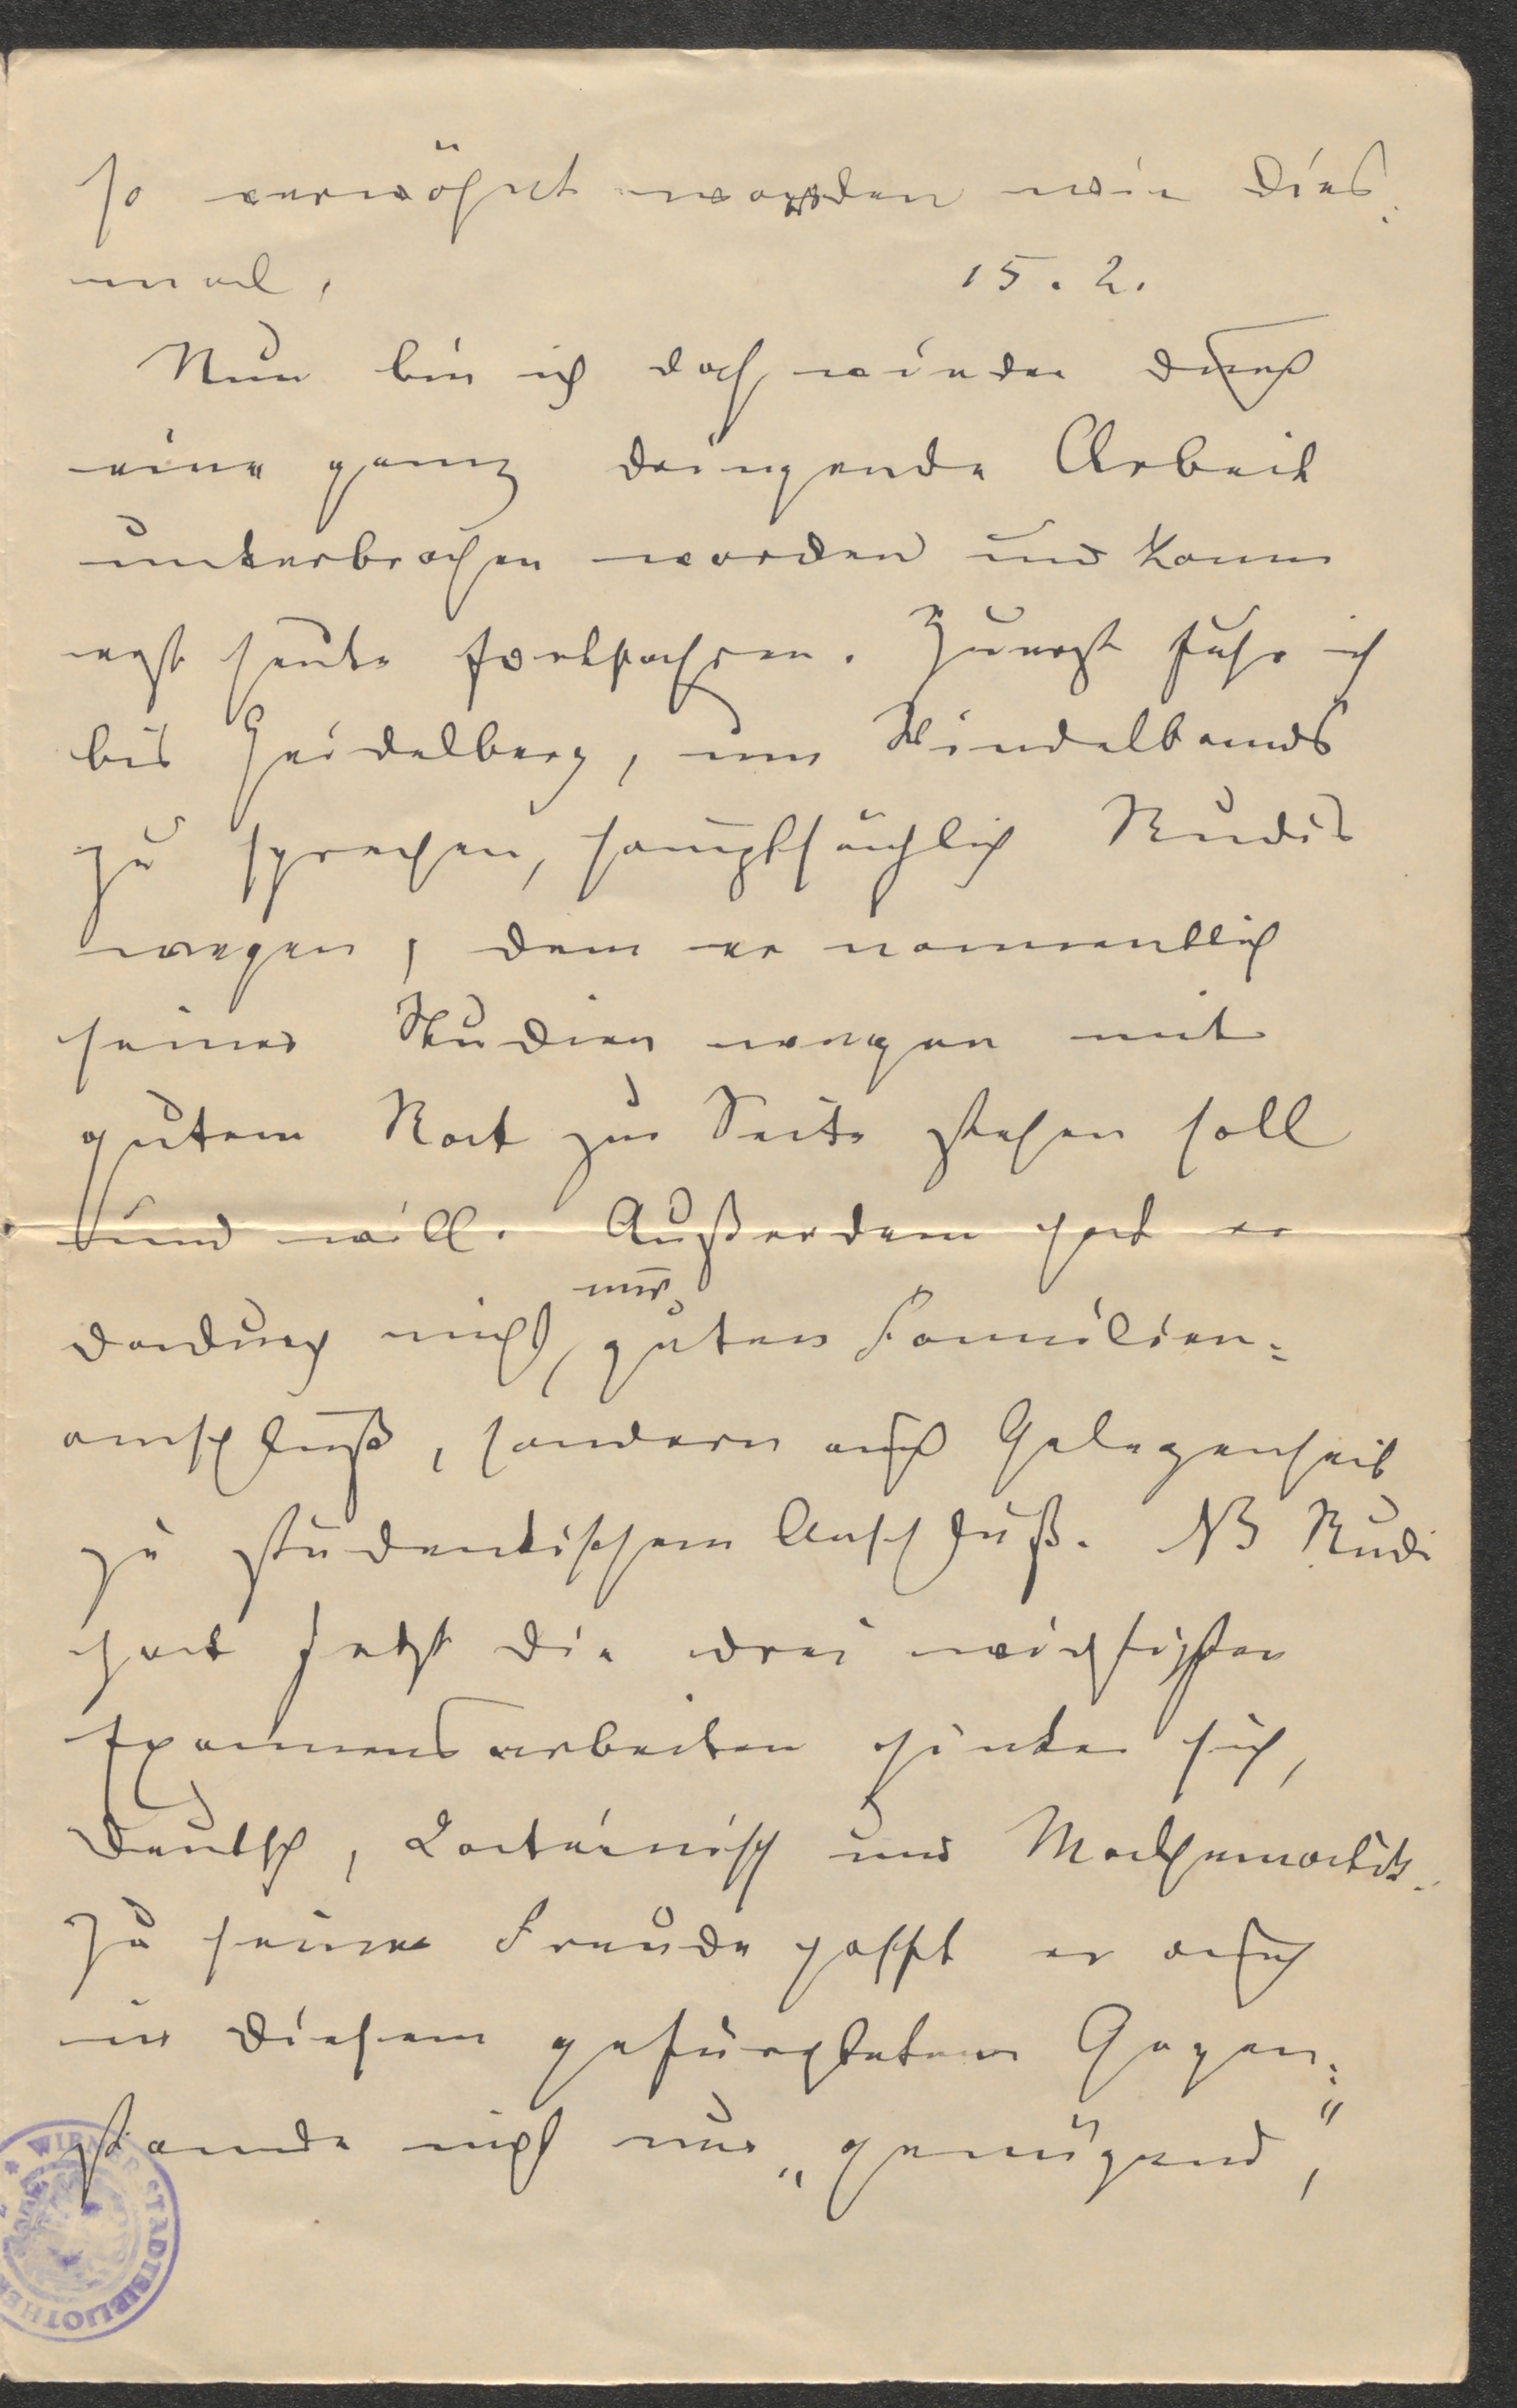 so verwöhnt worden wie dies-
mal.
15. 2.
Nun bin ich doch wieder durch
eine ganz dringende Arbeit
unterbrochen worden und kann
erst heute fortfahren. Zuerst fuhr ich
bis Heidelberg, um Windelbands
zu sprechen, hauptsächlich Rudis
wegen, dem er namentlich
seiner Studien wegen mit
gutem Rat zur Seite stehen soll
und will. Außerdem hat er
dadurch nicht nur guten Familien-
anschluß, sondern auch Gelegenheit
zu studentischem Anschluß. NB Rudi
hat jetzt die drei wichtigsten
Examensarbeiten hinter sich,
Deutsch, Lateinisch und Mathematik.
Zu seiner Freude hofft er auch
in diesem gefürchteten Gegen-
stande nicht nur „genügend",
WIENER STADTBIBLIOTHEK